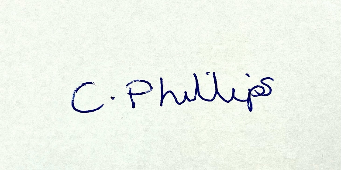 C. Phillips